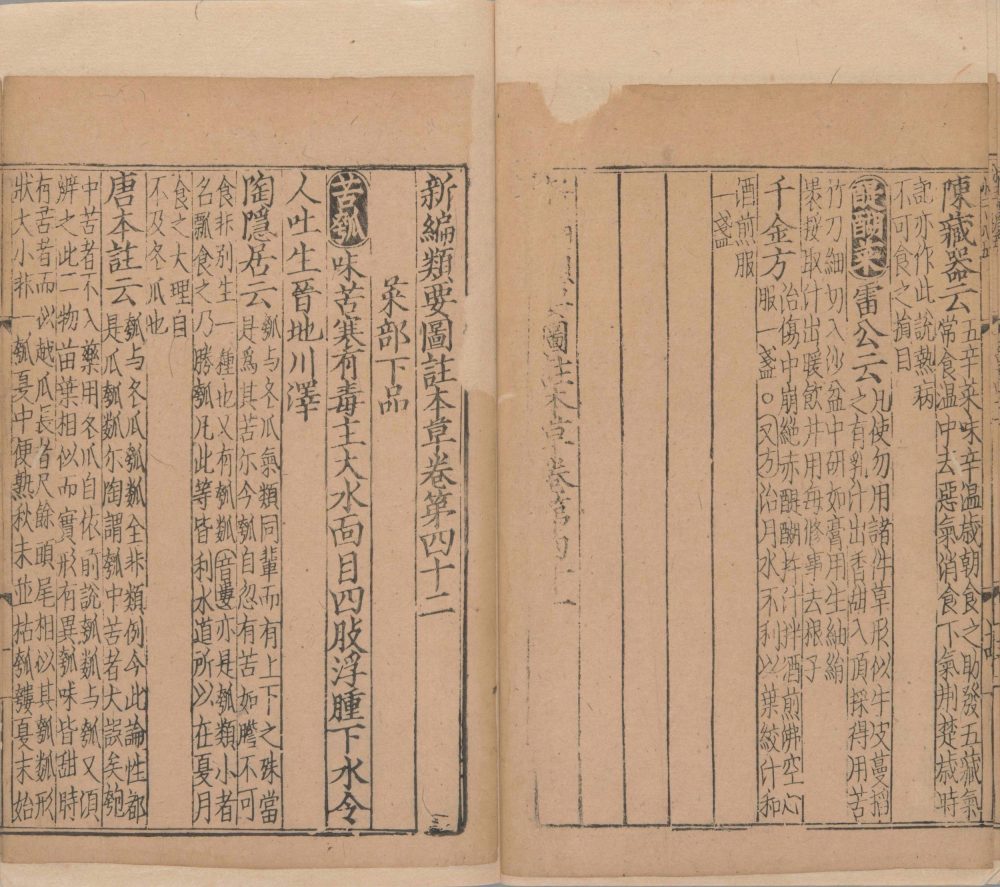 陳藏器云五辛菜味辛温歲朝食之助發五藏氣
常食温中去惡氣消食下氣荆楚歲時
記亦作此說熱病
不可食之損目
醍醐菜雷公云凡使勿用諸件草形似牛皮蔓掐
之有乳汁出香甜入頂採得用苦
竹刀細切入沙盆中研如膏用生紬絹
裹挼取汁出暖飲并用每修事去根子
千金方治傷中崩絶赤醍醐杵汁拌酒煎沸空心
服一盞○又方治月水不利以葉絞汁和
酒煎服
一盞
圖註本草卷第四十一
新編類要圖註本草卷第四十二
菜部下品
苦瓠味苦寒有毒主大水面目四肢浮腫下水令
人吐生晉地川澤
陶隱居云瓠与冬瓜氣類同輩而有上下之殊當
是爲其苦尔今瓠自忽有苦如膽不可
食非別生一種也又有瓠𤬛音婁亦是瓠類小者
名瓢食之乃勝瓠凡此等皆利水道所以在夏月
食之大理自
不及冬瓜也
唐本註云瓠与冬瓜瓠𤬛全非類例今此論性都
是瓜瓠類尔陶謂瓠中苦者大誤矣瓠
中苦者不入藥用冬瓜自依前說瓠𤬛与瓠又須
辨之此二物苗葉相似而實形有異瓠味皆甜時
有苦者而以越瓜長者尺餘頭尾相似其瓠𤬛形
狀大小非一瓠夏中便熟秋末並枯瓠𤬛夏末始